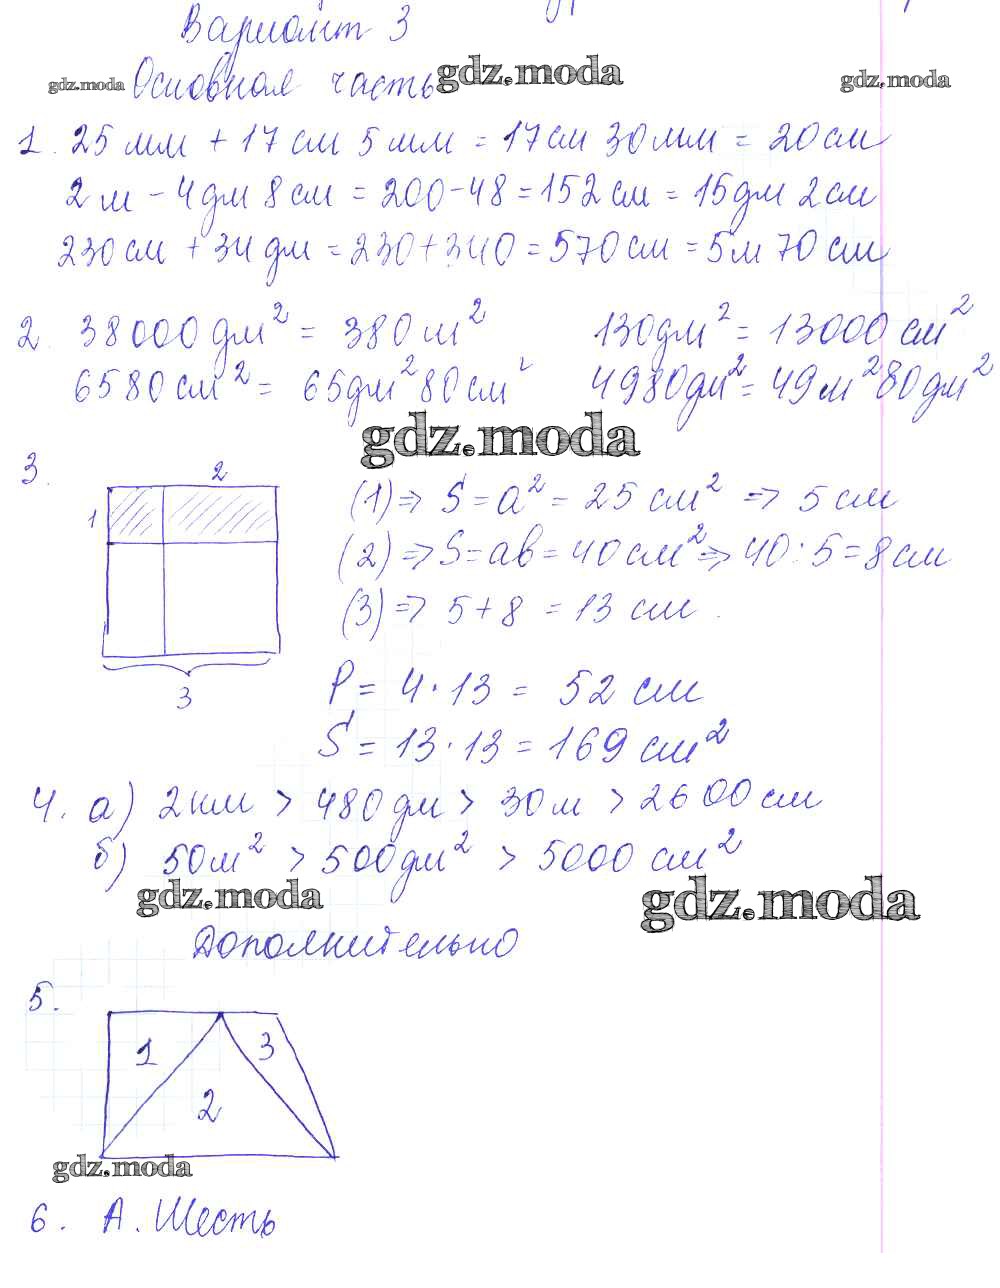 Вариант 3
Основная часть
gdz.moda gdz.moda gdz.moda
1. 25 мм + 17 см 5 мм = 17 см 30 мм = 20 см
2 м - 4 дм 8 см = 200 - 48 = 152 см = 15 дм 2 см
230 см + 34 дм = 230 + 340 = 570 см = 5 м 70 см
2. 38000 дм² = 380 м² 130 дм² = 13000 см²
6580 см² = 65 дм² 80 см² 4980 дм² = 49 м² 80 дм²
gdz.moda
3.
1
2
3
(1) => S = a² = 25 см² => 5 см
(2) => S = ab = 40 см² => 40 : 5 = 8 см
(3) => 5 + 8 = 13 см.
P = 4 · 13 = 52 см
S = 13 · 13 = 169 см²
4. а) 2 км > 480 дм > 30 м > 2600 см
б) 50 м² > 500 дм² > 5000 см²
gdz.moda gdz.moda
Дополнительно
5.
1 2 3
gdz.moda
6. А. Шесть